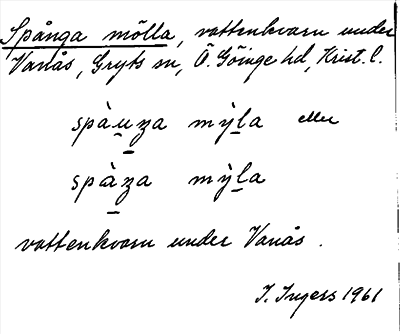 Spånga mölla, vattenkvarn under
Vanås, Gryts sn, Ö. Göinge hd, Krist. l.
spàuza mỳla eller
spàza mỳla
vattenkvarn under Vanås.
I. Ingers 1961